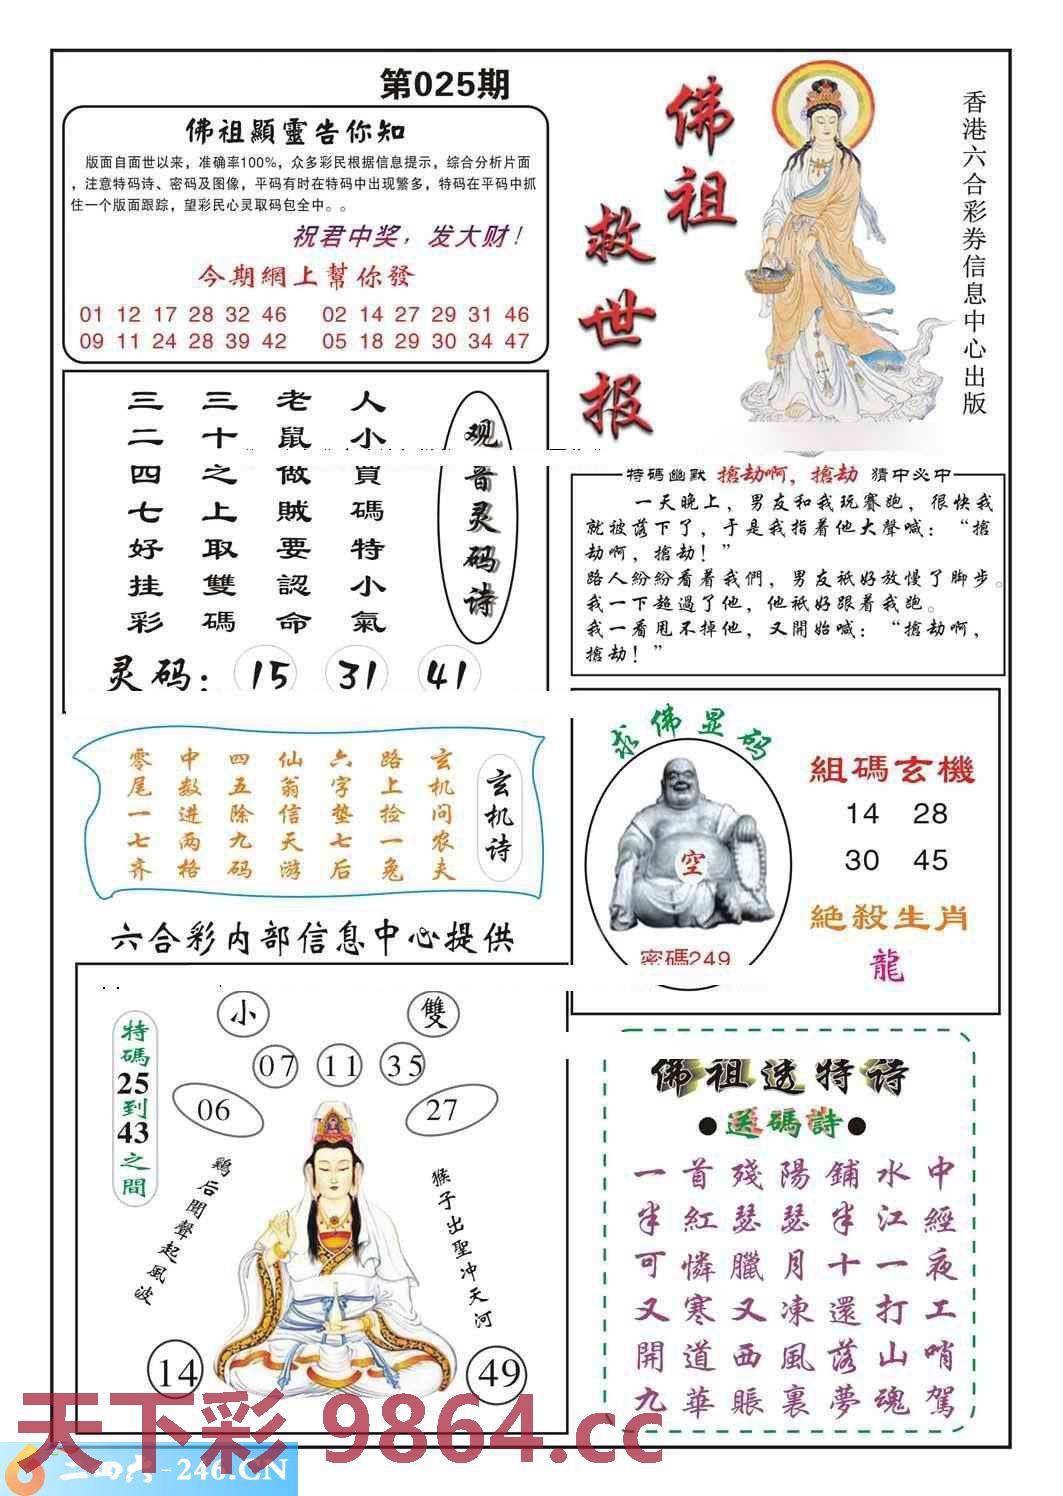 第025期
佛祖顯靈告你知
版面自面世以来，准确率100%，众多彩民根据信息提示，综合分析片面
，注意特码诗、密码及图像，平码有时在特码中出现繁多，特码在平码中抓
住一个版面跟踪，望彩民心灵取码包全中。。
祝君中奖，发大财！
今期網上幫你發
01 12 17 28 32 46 02 14 27 29 31 46
09 11 24 28 39 42 05 18 29 30 34 47
佛祖
救世报
香港六合彩券信息中心出版
观音灵码诗
人小買碼特小氣
老鼠做賊要認命
三十之上取雙碼
三二四七好挂彩
灵码：15 31 41
特碼幽默 搶劫啊，搶劫 猜中必中
一天晚上，男友和我玩賽跑，很快我
就被落下了，于是我指着他大聲喊：“搶
劫啊，搶劫！”
路人紛紛看着我們，男友衹好放慢了脚步。
我一下超過了他，他衹好跟着我跑。
我一看甩不掉他，又開始喊：“搶劫啊，
搶劫！”
玄机诗
玄机问农夫
路上捡一兔
六字垫七后
仙翁信天游
四五除九码
中数进两格
零尾一七齐
求佛显码
空
密碼249
組碼玄機
14 28
30 45
絕殺生肖
龍
六合彩内部信息中心提供
特碼25到43之間
小 雙
07 11 35
06 27
鷄后聞聲起風波
猴子出聖冲天河
14 49
佛祖透特诗
●送碼詩●
中經夜工哨駕
水江一打山魂
鋪半十還落夢
陽瑟月凍風裏
殘瑟臘又西賬
首紅憐寒道華
一半可又開九
天下彩 9864.cc
二四六-246.CN